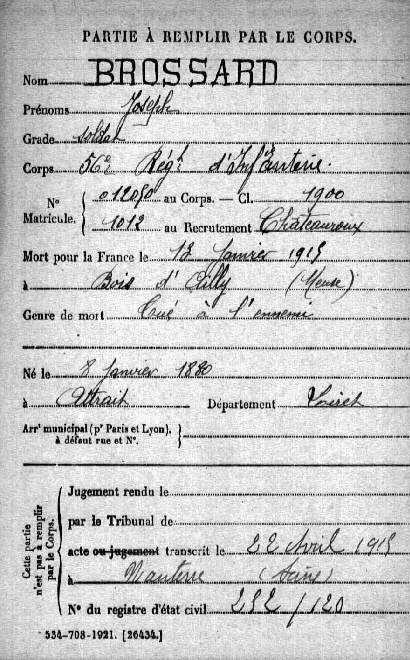 PARTIE À REMPLIR PAR LE CORPS.
Nom BROSSARD
Prénoms Joseph
Grade soldat
Corps 56e Régt d'Infanterie.
Nº Matricule. 012080 au Corps. — Cl. 1900
1012 au Recrutement Châteauroux
Mort pour la France le 13 Janvier 1915
à Bois d'Ailly (Meuse)
Genre de mort Tué à l'ennemi
Né le 8 Janvier 1880
à Attrait Département Loiret
Arrt municipal (pr Paris et Lyon),
à défaut rue et Nº.
Cette partie n'est pas à remplir par le Corps.
Jugement rendu le
par le Tribunal de
acte ou jugement transcrit le 22 Avril 1915
à Nanterre (Seine)
Nº du registre d'état civil 252/120
534-708-1921. [26434.]